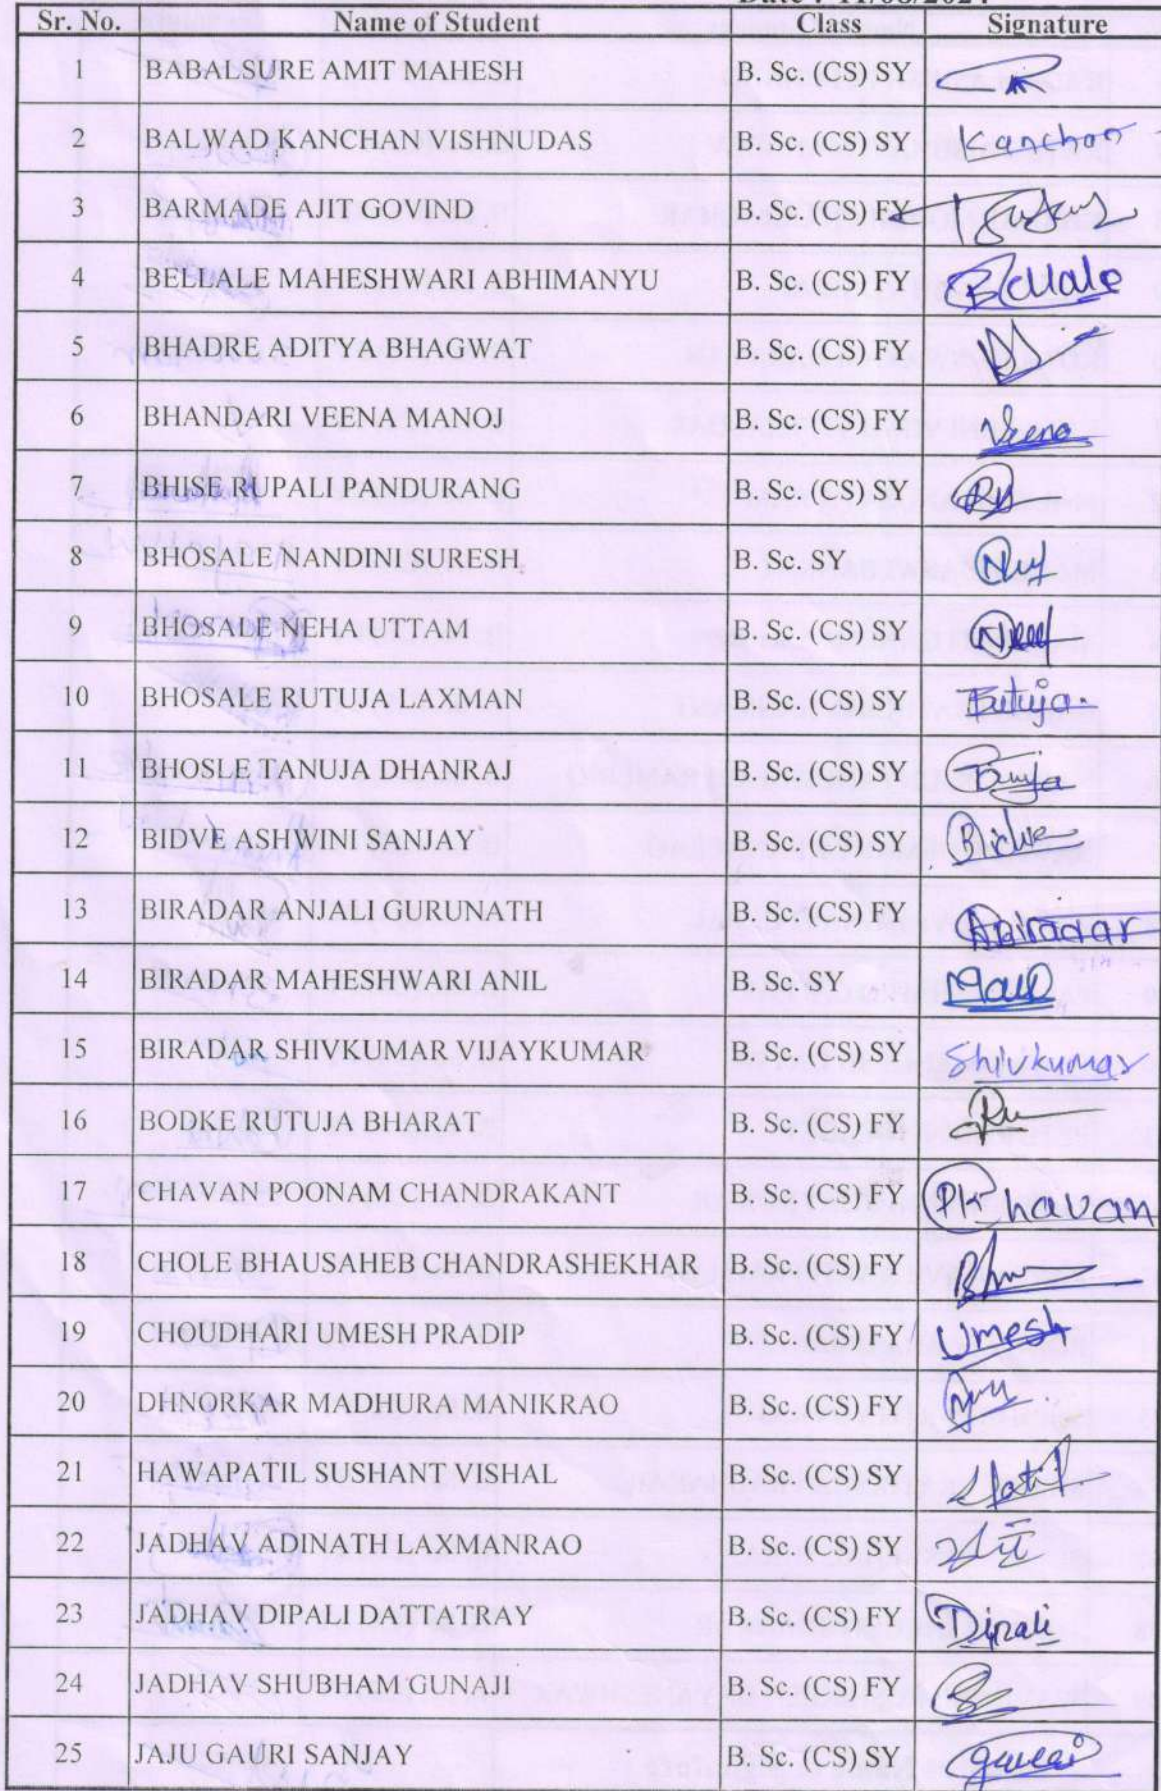 Date : 11/08/2024
Sr. No. Name of Student Class Signature
1 BABALSURE AMIT MAHESH B. Sc. (CS) SY
2 BALWAD KANCHAN VISHNUDAS B. Sc. (CS) SY Kanchan
3 BARMADE AJIT GOVIND B. Sc. (CS) FY
4 BELLALE MAHESHWARI ABHIMANYU B. Sc. (CS) FY Bellale
5 BHADRE ADITYA BHAGWAT B. Sc. (CS) FY
6 BHANDARI VEENA MANOJ B. Sc. (CS) FY Veena
7 BHISE RUPALI PANDURANG B. Sc. (CS) SY
8 BHOSALE NANDINI SURESH B. Sc. SY
9 BHOSALE NEHA UTTAM B. Sc. (CS) SY
10 BHOSALE RUTUJA LAXMAN B. Sc. (CS) SY Rutuja
11 BHOSLE TANUJA DHANRAJ B. Sc. (CS) SY
12 BIDVE ASHWINI SANJAY B. Sc. (CS) SY Bidve
13 BIRADAR ANJALI GURUNATH B. Sc. (CS) FY ABiradar
14 BIRADAR MAHESHWARI ANIL B. Sc. SY
15 BIRADAR SHIVKUMAR VIJAYKUMAR B. Sc. (CS) SY Shivkumar
16 BODKE RUTUJA BHARAT B. Sc. (CS) FY
17 CHAVAN POONAM CHANDRAKANT B. Sc. (CS) FY PKChavan
18 CHOLE BHAUSAHEB CHANDRASHEKHAR B. Sc. (CS) FY
19 CHOUDHARI UMESH PRADIP B. Sc. (CS) FY Umesh
20 DHNORKAR MADHURA MANIKRAO B. Sc. (CS) FY
21 HAWAPATIL SUSHANT VISHAL B. Sc. (CS) SY
22 JADHAV ADINATH LAXMANRAO B. Sc. (CS) SY
23 JADHAV DIPALI DATTATRAY B. Sc. (CS) FY Dipali
24 JADHAV SHUBHAM GUNAJI B. Sc. (CS) FY
25 JAJU GAURI SANJAY B. Sc. (CS) SY Gauri